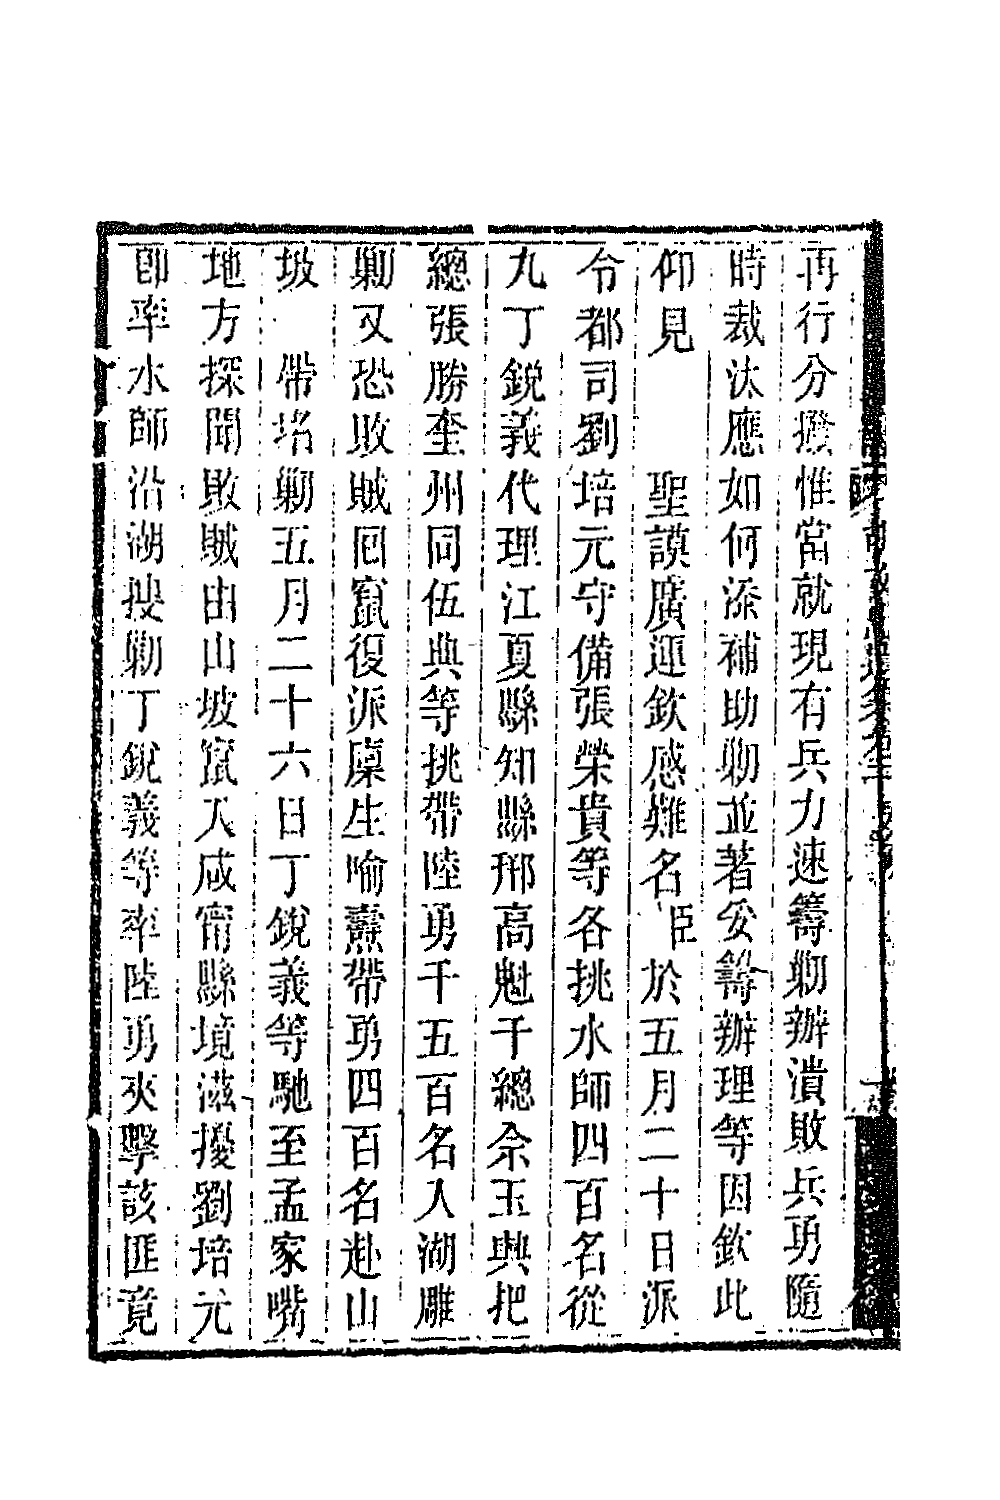 再行分撥惟當就現有兵力速籌勦辦潰敗兵勇隨
時裁汰應如何添補助勦並著妥籌辦理等因欽此
仰見　　聖謨廣運欽感難名臣於五月二十日派
令都司劉培元守備張榮貴等各挑水師四百名從
九丁銳義代理江夏縣知縣邢高魁千總佘玉典把
總張勝奎州同伍典等挑帶陸勇千五百名入湖雕
勦又恐敗賊囘竄復派廩生喻燾帶勇四百名赴山
坡　帶堵勦五月二十六日丁銳義等馳至孟家嘴
地方探聞敗賊由山坡竄入咸甯縣境滋擾劉培元
卽率水師沿湖搜勦丁銳義等率陸勇夾擊該匪竟